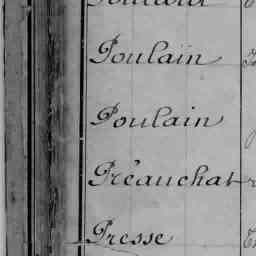 Poulain
Poulain
Préauchat
Presse